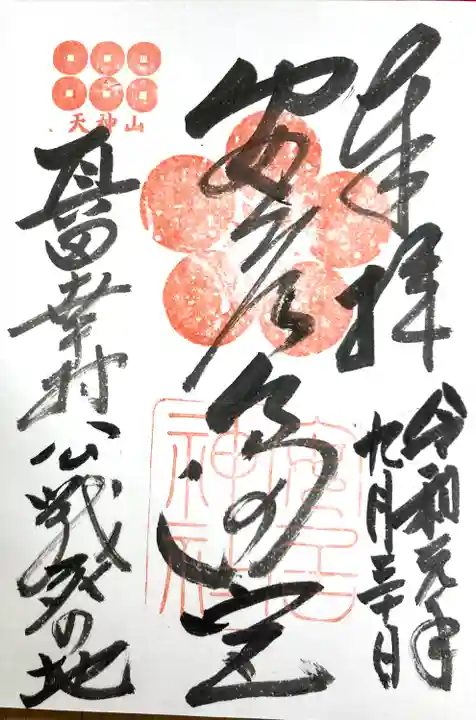 奉拝
令和元年
九月三十日
安居の
天神山
真田幸村公戦死の地